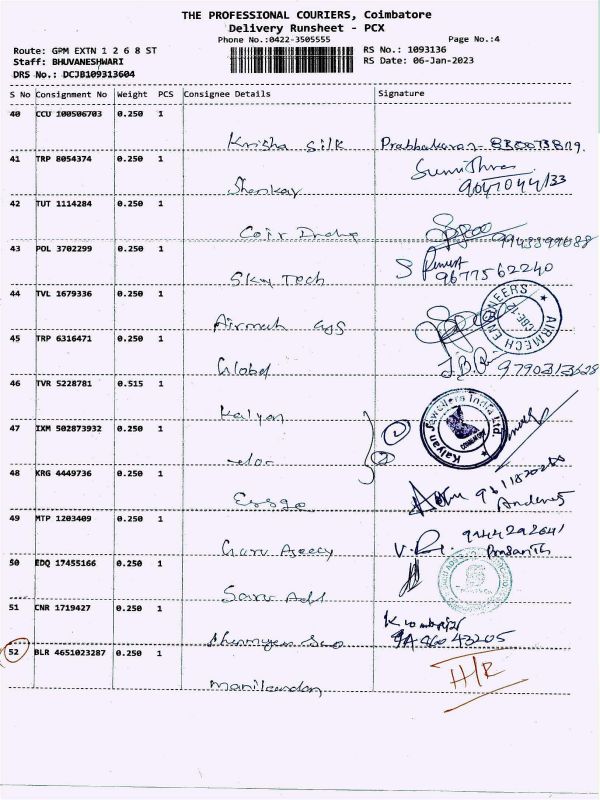 THE PROFESSIONAL COURIERS, Coimbatore
Delivery Runsheet - PCX
Phone No.:0422-3505555
Page No.:4
Route: GPM EXTN 1 2 6 8 ST
Staff: BHUVANESHWARI
DRS No.: DCJB109313604
RS No.: 1093136
RS Date: 06-Jan-2023
S No Consignment No Weight PCS Consignee Details Signature
40 CCU 100506703 0.250 1
Krisha Silk Prabhakaran
41 TRP 8054374 0.250 1
Shankar
42 TUT 1114284 0.250 1
Coir
43 POL 3702299 0.250 1
Sky Tech 9677562240
44 TVL 1679336 0.250 1
Airmech
AIRMECH ENGINEERS
CBE-12
45 TRP 6316471 0.250 1
Global J.B.
46 TVR 5228781 0.515 1
Kalyan
Kalyan Jewellers India Ltd.
47 IXM 502873932 0.250 1
-do-
48 KRG 4449736 0.250 1
49 MTP 1203409 0.250 1
9442292641
Prasanth
50 EDQ 17455166 0.250 1
51 CNR 1719427 0.250 1
52 BLR 4651023287 0.250 1
Manikandan H/R